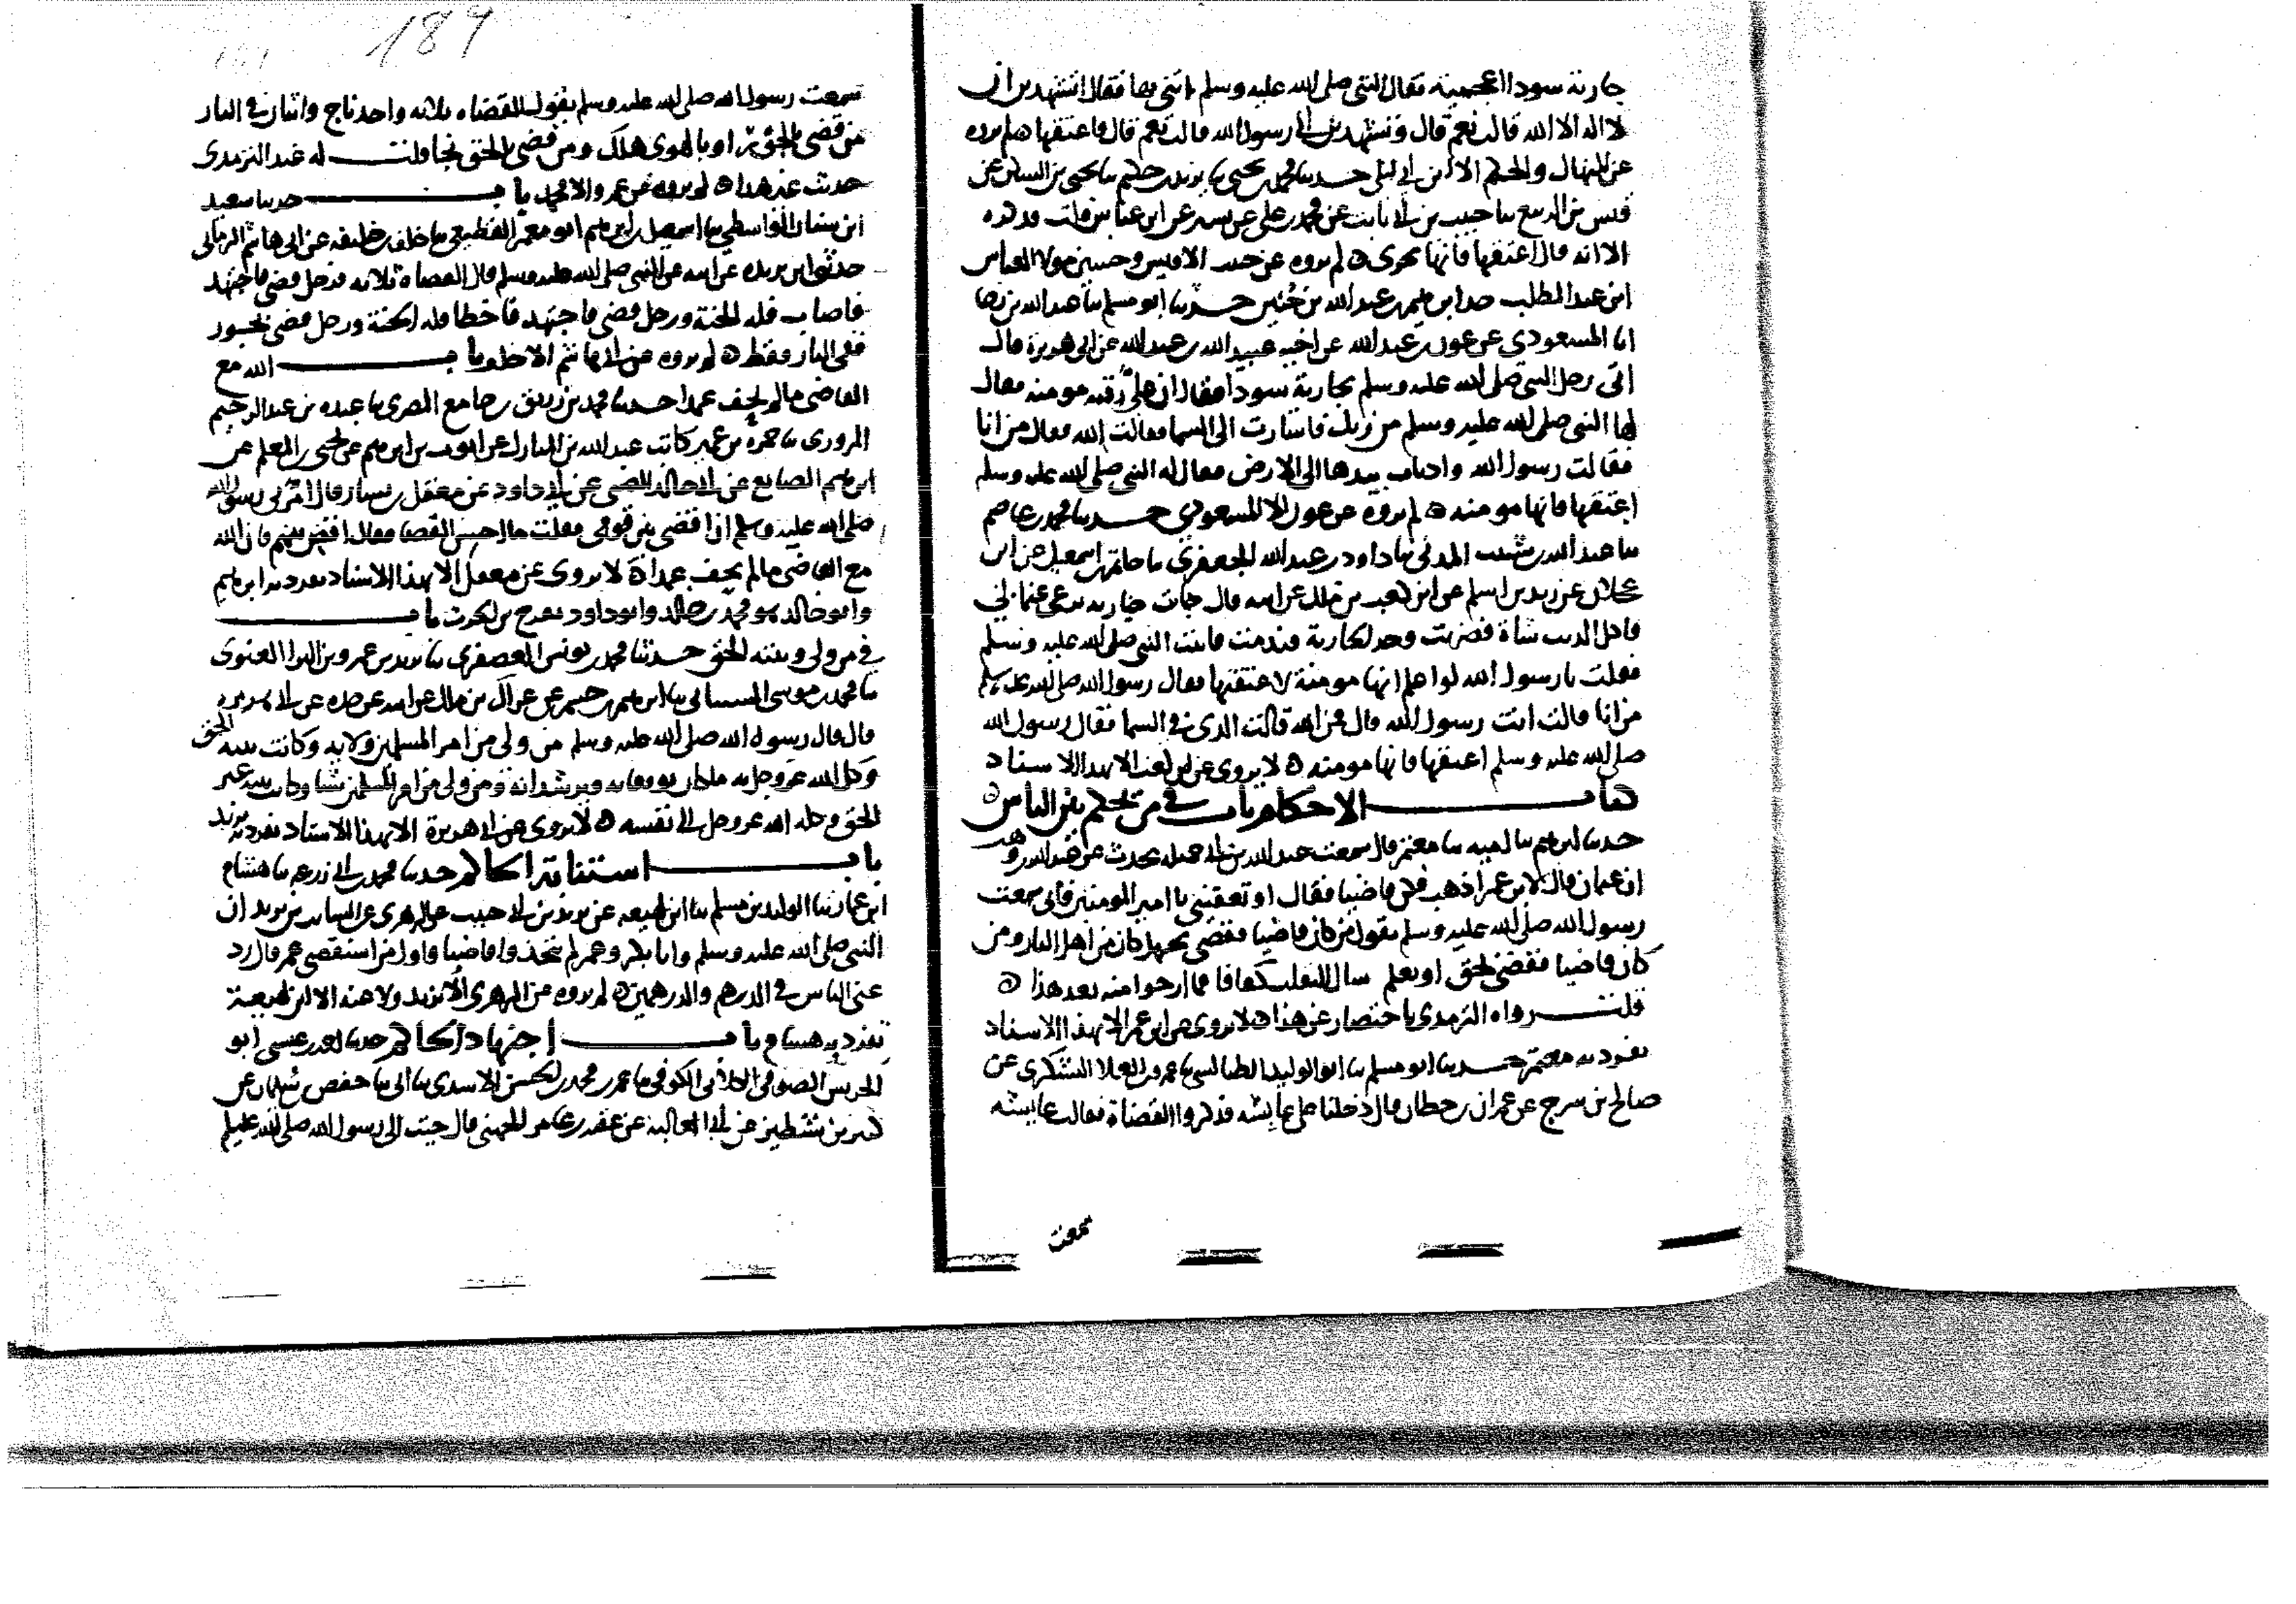 جارية سودا اعجمية فقال النبي صلى الله عليه وسلم ائتني بها فقال اتشهدين ان
لا اله الا الله قالت نعم قال وتشهدين اني رسول الله قالت نعم قال فاعتقها لم يروه
عن المنهال والحكم الا ابن ابي ليلى حدثنا محمد بن يحيى ثنا يزيد بن حكيم ثنا يحيى بن السكن عن
قيس بن الربيع ثنا حبيب بن ابي ثابت عن محمد بن علي عن ابن عباس قلت فذكره
الا انه قال اعتقها فانها تجزى لم يروه عن حبيب الا قيس وحسين مولا العباس
ابن عبد المطلب جد ابرهيم بن عبد الله بن حنين حدثنا ابو مسلم ثنا عبد الله بن رجا
انا المسعودي عن عون بن عبد الله عن اخيه عبيد الله بن عبد الله عن ابي هريرة قال
اتى رجل النبي صلى الله عليه وسلم بجارية سودا فقال ان علي رقبة مومنة فقال
لها النبي صلى الله عليه وسلم من ربك فاشارت الى السما فقالت الله فقال من انا
فقالت رسول الله واومات بيدها الى الارض فقال له النبي صلى الله عليه وسلم
اعتقها فانها مومنة لم يروه عن عون الا المسعودي حدثنا محمد بن عاصم
ثنا عبد الله بن شبيب المدني ثنا داود بن عبد الله الجعفري ثنا حاتم بن اسمعيل عن ابن
عجلان عن زيد بن اسلم عن ابن كعب بن مالك عن ابيه قال جات جارية ترعى غنما لي
فاكل الذيب شاة فضربت وجه الجارية فندمت فاتيت النبي صلى الله عليه وسلم
فقلت يا رسول الله لو اعلم انها مومنة لاعتقتها فقال رسول الله صلى الله عليه وسلم
من انا قالت انت رسول الله قال فمن الله قالت الذي في السما فقال رسول الله
صلى الله عليه وسلم اعتقها فانها مومنة لا يروى عن ابن كعب الا بهذا الاسناد
كتاب الاحكام باب في من يحكم بين الناس
حدثنا ابرهيم ثنا امية ثنا معتمر قال سمعت عبد الملك بن ابي جميلة يحدث عن عبد الله بن وهب
ان عثمان قال لابن عمر اذهب فكن قاضيا فقال او تعفيني يا امير المومنين فاني سمعت
رسول الله صلى الله عليه وسلم يقول من كان قاضيا فقضى بجهل كان من اهل النار ومن
كان قاضيا فقضى بحق او بعلم سال التفلت كفافا فما ارجوا منه بعد هذا
قلت رواه الترمذي باختصار عن هذا لا يروى عن ابن عمر الا بهذا الاسناد
تفرد به معتمر حدثنا ابو مسلم ثنا ابو الوليد الطيالسي ثنا عمرو بن العلا اليشكري عن
صالح بن سرج عن عمران بن حطان قال دخلنا على عايشة فذكروا القضاة فقالت عايشة
سمعت
189
سمعت رسول الله صلى الله عليه وسلم يقول القضاه ثلاثه واحد ناج واثنان في النار
من قضى بالجور او بالهوى هلك ومن قضى بالحق نجا قلت له عند الترمذي
حديث غير هذا لم يروه عن عمر والا محمد باب حدثنا سعيد
ابن سنان الواسطي ثنا اسمعيل بن ابرهيم ابو معمر القطيعي ثنا خلف بن خليفه عن ابي هاشم الرماني
حدثني ابن بريده عن ابيه عن النبي صلى الله عليه وسلم قال القضاة ثلاثه فرجل قضى فاجتهد
فاصاب فله الجنة ورجل قضى فاجتهد فاخطا فله الجنة ورجل قضى بجور
ففي النار فقط لم يروه عن ابي هاشم الا خلف باب الله مع
القاضي ما لم يحف عمدا حدثنا محمد بن زريق بن جامع المصري ثنا عبده بن عبد الرحيم
المروزي ثنا حمزه بن عمير كاتب عبد الله بن المبارك عن ايوب بن ابرهيم عن يحيى المعلم عن
ابرهيم الصايغ عن ابي خالد عن ابي داود عن معقل بن يسار قال امرني رسول الله
صلى الله عليه وسلم ان اقضي بين قومي فقلت ما احسن القضا فقال اقض بينهم فان الله
مع القاضي ما لم يحف عمدا لا يروى عن معقل الا بهذا الاسناد تفرد به ابرهيم
وابو خالد هو محمد بن خالد وابو داود نفيع بن الحرث باب
في من ولي ونيته الحق حدثنا محمد بن يونس العصفري ثنا يزيد بن عمرو بن البرا الغنوي
ثنا محمد بن موسى الشيباني ثنا ابرهيم بن خثيم عن عراك بن مالك عن ابيه عن جده عن ابي هريرة
قال قال رسول الله صلى الله عليه وسلم من ولي من امر المسلمين ولاية وكانت نيته الحق
وكل الله عز وجل به ملكان يوفقانه ويرشدانه ومن ولي من امر المسلمين شيا وكانت نيته غير
الحق وكله الله عز وجل الى نفسه لا يروى عن ابي هريرة الا بهذا الاسناد تفرد به يزيد
باب استنابة الحاكم حدثنا محمد بن ابي زرعه ثنا هشام
ابن عمار ثنا الوليد بن مسلم ثنا ابن لهيعه عن يزيد بن ابي حبيب عن الزهري عن السايب بن يزيد ان
النبي صلى الله عليه وسلم وابا بكر وعمر لم يتخذوا قاضيا واول من استقضى عمر قال رد
عني الناس في الدرهم والدرهمين لم يروه عن الزهري الا يزيد ولا عنه الا ابن لهيعة
تفرد به هشام باب اجتهاد الحاكم حدثنا احمد بن عيسى ابو
الحريش الصوفي الكلابي الكوفي ثنا عمر بن محمد بن الحسن الاسدي ثنا ابي ثنا حفص بن سليمان عن
كثير بن شنظير عن ابي العاليه عن عقبة بن عامر الجهني قال جيت الى رسول الله صلى الله عليه